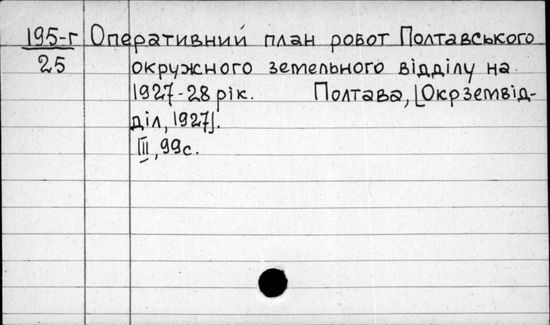 195-г Оперативний план робот Полтавського
25 окружного земельного відділу на
1927-28 рік. Полтава, [Окрземвід-
діл, 1927].
III, 99 с.